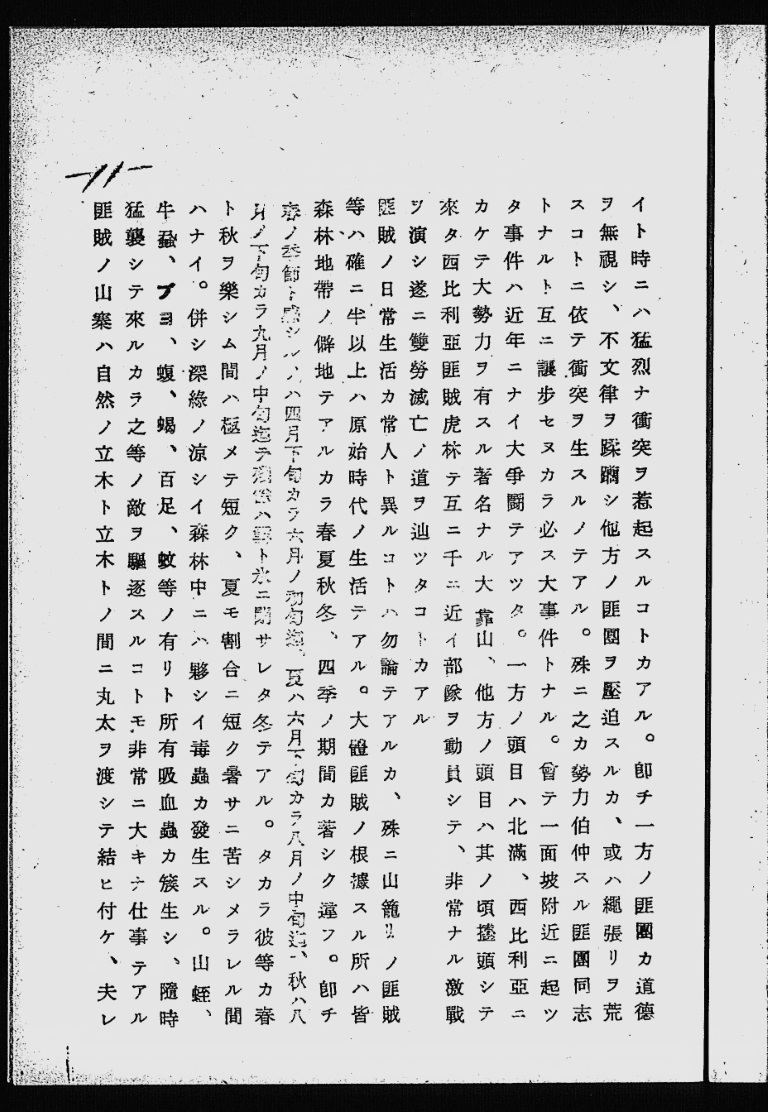 イト時ニハ猛烈ナ衝突ヲ惹起スルコトカアル。卽チ一方ノ匪團カ道德
ヲ無視シ、不文律ヲ蹂躙シ他方ノ匪團ヲ壓迫スルカ、或ハ繩張リヲ荒
スコトニ依テ衝突ヲ生スルノテアル。殊ニ之カ勢力伯仲スル匪團同志
トナルト互ニ讓步セヌカラ必ス大事件トナル。曾テ一面坡附近ニ起ツ
タ事件ハ近年ニナイ大爭鬪テアツタ。一方ノ頭目ハ北滿、西比利亞ニ
カケテ大勢力ヲ有スル著名ナル大靠山、他方ノ頭目ハ其ノ頃擡頭シテ
來タ西比利亞匪賊虎林テ互ニ千ニ近イ部隊ヲ動員シテ、非常ナル激戰
ヲ演シ遂ニ雙勞滅亡ノ道ヲ辿ツタコトカアル
匪賊ノ日常生活カ常人ト異ルコトハ勿論テアルカ、殊ニ山籠リノ匪賊
等ハ確ニ半以上ハ原始時代ノ生活テアル。大體匪賊ノ根據スル所ハ皆
森林地帶ノ僻地テアルカラ春夏秋冬、四季ノ期間カ著シク違フ。卽チ
春ノ季節ト感シルノハ四月下旬カラ六月ノ初旬迄、夏ハ六月下旬カラ八月ノ中旬迄、秋ハ八
月ノ下旬カラ九月ノ中旬迄テ殘餘ハ雪ト氷ニ閉サレタ冬テアル。タカラ彼等カ春
ト秋ヲ樂シム間ハ極メテ短ク、夏モ割合ニ短ク暑サニ苦シメラレル間
ハナイ。併シ深綠ノ涼シイ森林中ニハ夥シイ毒蟲カ發生スル。山蛭、
牛蝨、ブヨ、蝮、蝎、百足、蚊等ノ有リト所有吸血蟲カ簇生シ、隨時
猛襲シテ來ルカラ之等ノ敵ヲ驅逐スルコトモ非常ニ大キナ仕事テアル
匪賊ノ山寨ハ自然ノ立木ト立木トノ間ニ丸太ヲ渡シテ結ヒ付ケ、夫レ
-11-